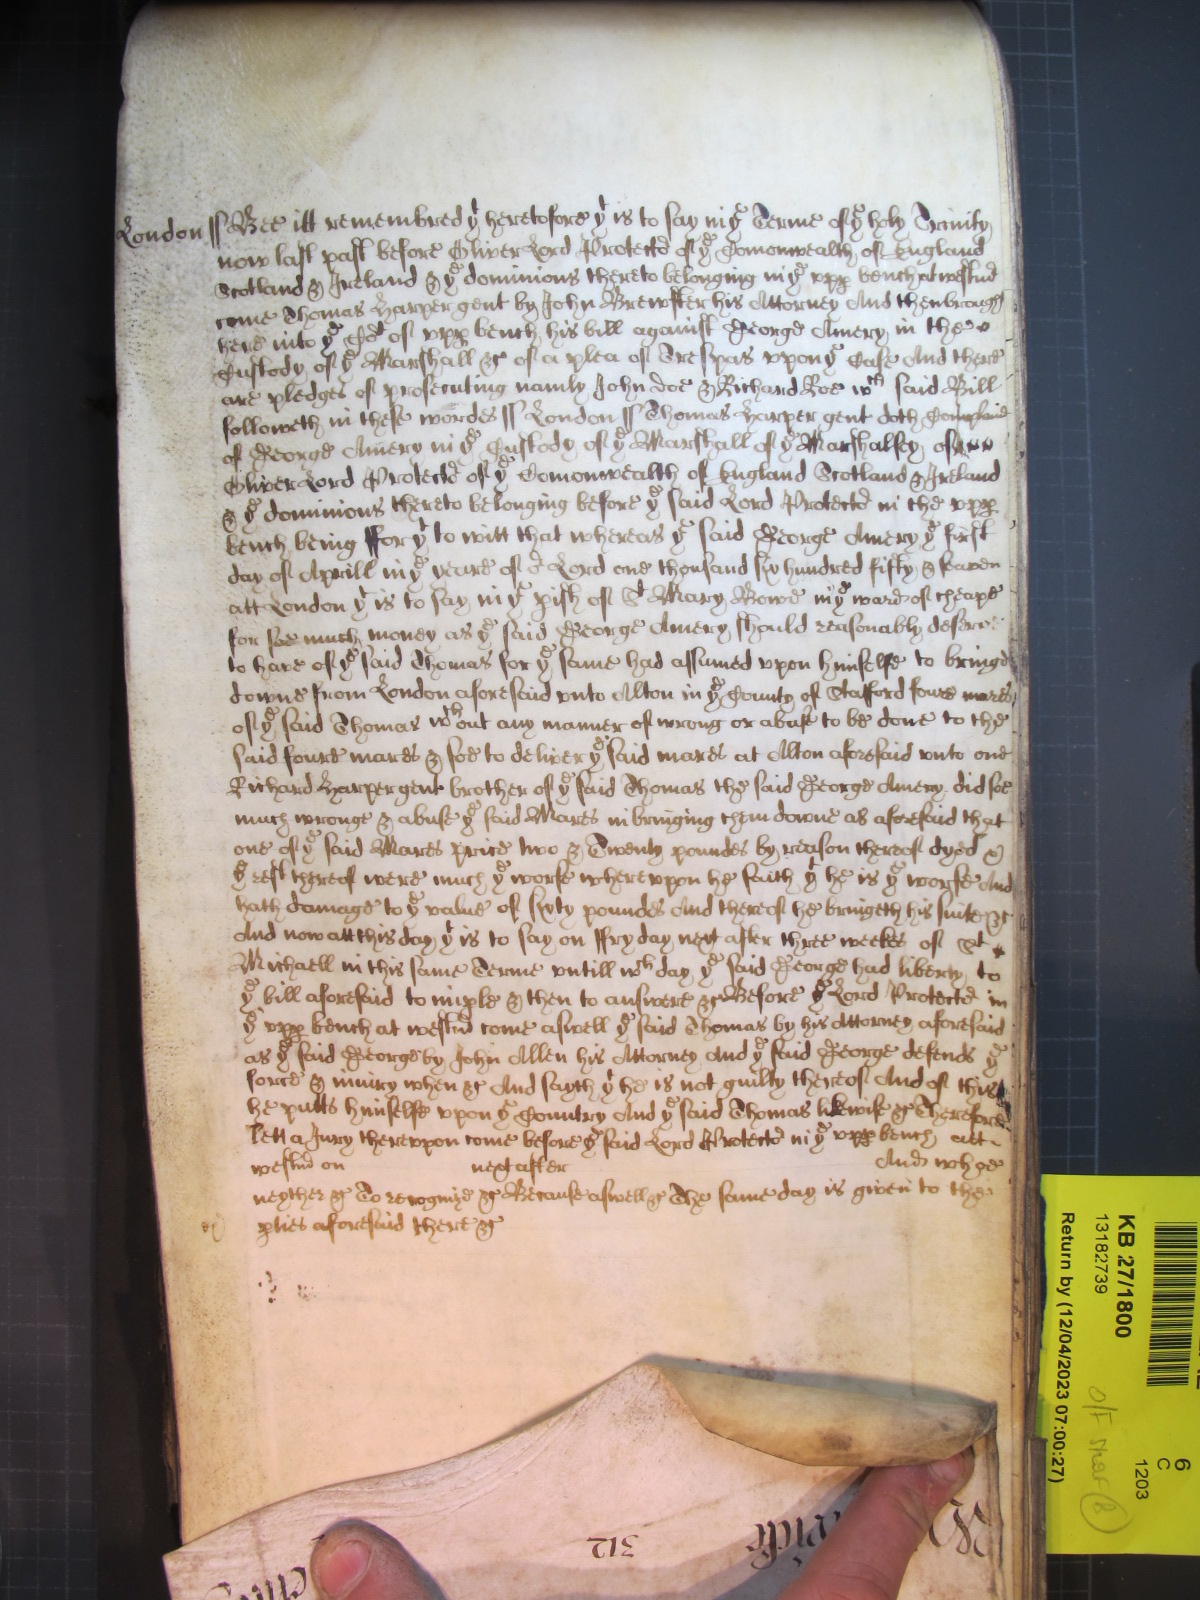 London ss Bee itt remembred yt heretofore yt is to say in ye Terme of ye holy Trinity
now last past before Oliver Lord Protector of ye Comonwealth of England
Scotland & Ireland & ye dominions thereto belonging in ye upp bench at westmr
come Thomas Harper gent by John Brewster his Attorney And then brought
here into ye Cort of upp bench his bill against George Amery in the
Custody of ye Marshall &c of a plea of Trespas upon ye Case And there
are pledges of prosecuting namly John Doe & Richard Roe wch said Bill
followeth in these wordes ss London ss Thomas Harper gent doth Complaine
of George Amery in ye Custody of ye Marshall of ye Marshalsey of
Oliver Lord Protector of ye Comonwealth of England Scotland & Ireland
& ye dominions thereto belonging before ye said Lord Protector in the upp
bench being ffor yt to witt that whereas ye said George Amery ye first
day of Aprill in ye yeare of or Lord one thousand six hundred fifty & seaven
att London yt is to say in ye pish of St Mary Bowe in ye ward of cheape
for soe much money as ye said George Amery should reasonably deserve
to have of ye said Thomas for ye same had assumed upon himselfe to bringe
downe from London aforesaid unto Alton in ye County of Stafford foure mares
of ye said Thomas wthout any manner of wrong or abuse to be done to the
said foure mares & soe to deliver ye said mares at Alton aforesaid unto one
Richard Harper gent brother of ye said Thomas the said George Amery did soe
much wronge & abuse ye said Mares in bringing them downe as aforesaid that
one of ye said Mares price two & Twenty poundes by reason thereof dyed &
ye rest thereof were much ye worse whereupon he saith yt he is ye worse And
hath damage to ye value of sixty poundes And thereof he bringeth his suite &c
And now att this day yt is to say on ffryday next after three weekes of St
Michaell in this same Terme untill wch day ye said George had liberty to
ye bill aforesaid to imple & then to answere &c Before ye Lord Protector in
ye upp bench at westmr come aswell ye said Thomas by his Attorney aforesaid
as ye said George by John Allen his Attorney And ye said George defends ye
force & iniury when &c And sayth yt he is not guilty thereof And of this
he putts himselfe upon ye Country And ye said Thomas likewise &c Therefore
lett a Jury thereupon come before ye said Lord Protector in ye upp bench att
westmr on next after And who
neyther &c To recognize &c Because aswell &c The same day is given to the
pties aforesaid there &c
312
KB 27/1800
13182739
Return by (12/04/2023 07:00:27)
6
C
1203